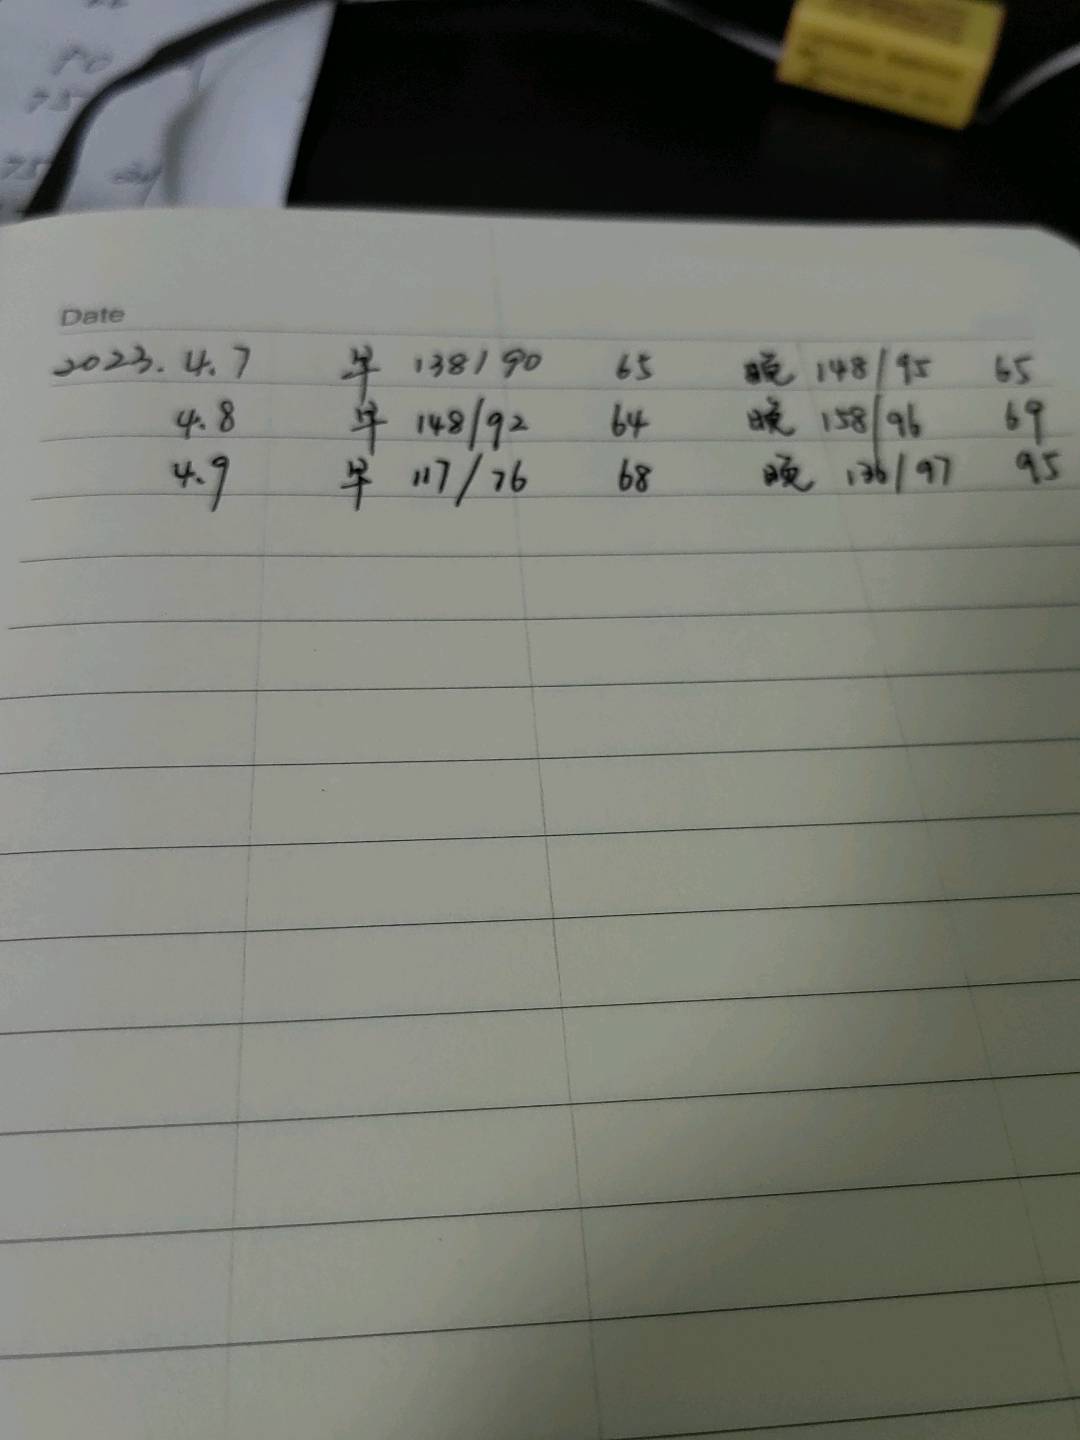 80
75
75
Date
2023. 4.7 早 138/90 65 晚 148/95 65
4.8 早 148/92 64 晚 158/96 69
4.9 早 117/76 68 晚 136/97 95